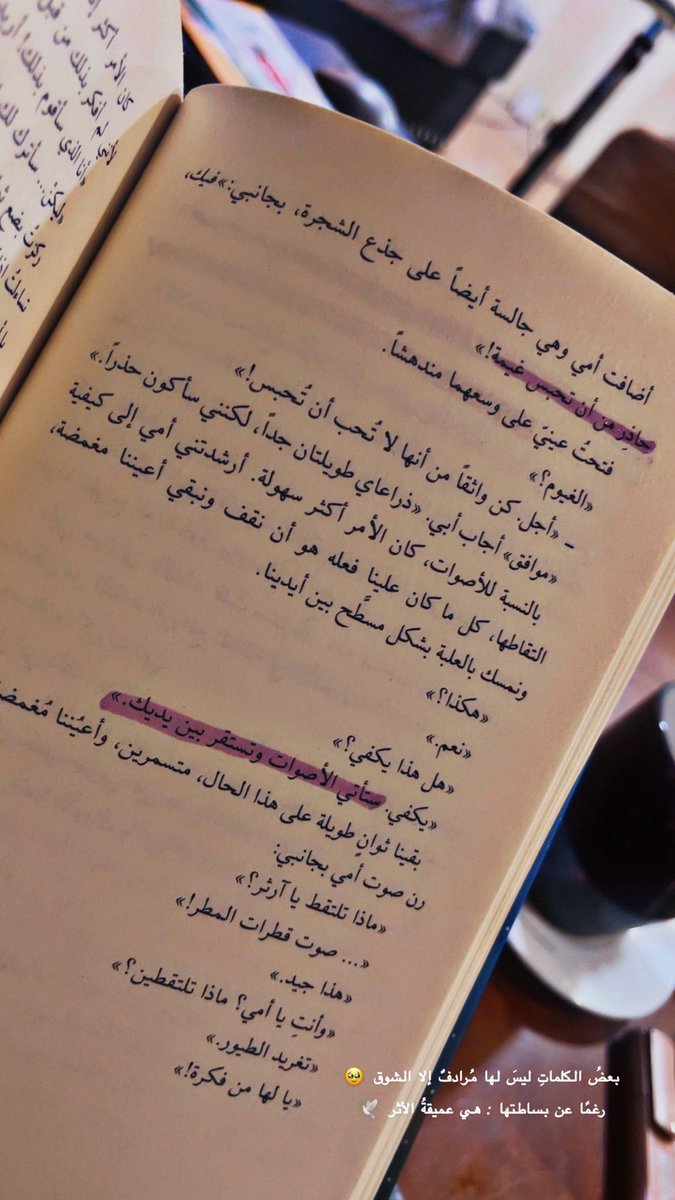 كان الأمر أكثر
أضافت أمي وهي جالسة أيضاً على جذع الشجرة، بجانبي: »فيك،
حاذِر من أن تحبس غيمة!»
فتحتُ عينيّ على وسعهما مندهشاً.
«الغيوم؟»
– «أجل. كن واثقاً من أنها لا تُحب أن تُحبس!»
«موافق» أجاب أبي. «ذراعاي طويلتان جداً، لكنني سأكون حذراً.»
بالنسبة للأصوات، كان الأمر أكثر سهولة. أرشدتني أمي إلى كيفية
التقاطها، كل ما كان علينا فعله هو أن نقف ونبقي أعيننا مغمضة،
ونمسك بالعلبة بشكل مسطَّح بين أيدينا.
«هكذا؟»
«نعم.»
«هل هذا يكفي؟»
«يكفي. ستأتي الأصوات وتستقر بين يديك.»
بقينا ثوانٍ طويلة على هذا الحال، متسمرين، وأعيُننا مُغمضة
رن صوت أمي بجانبي:
«ماذا تلتقط يا آرثر؟»
«... صوت قطرات المطر!»
«هذا جيد.»
«وأنتِ يا أمي؟ ماذا تلتقطين؟»
«تغريد الطيور.»
«يا لها من فكرة!»
بعضُ الكلماتِ ليسَ لها مُرادفٌ إلا الشوق 🥹
رغمًا عن بساطتها : هـي عميقةُ الأثر 🕊️